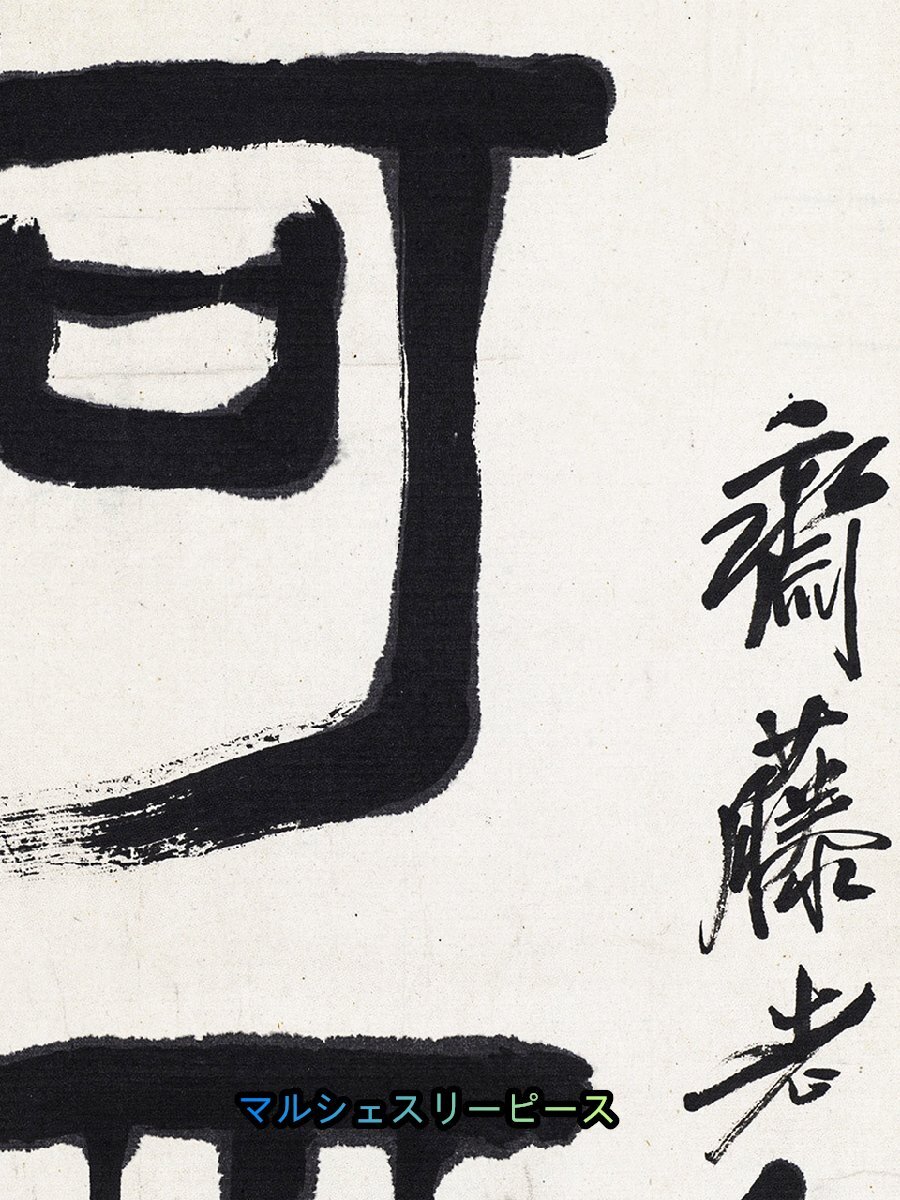 齋藤老
可
マルシェスリーピース